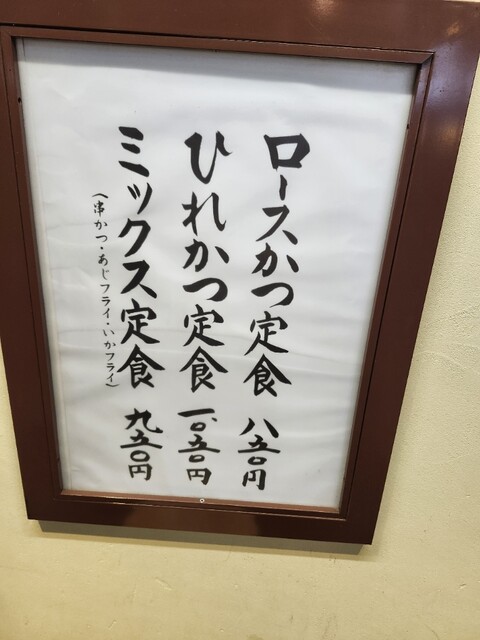 ロースかつ定食 八五〇円
ひれかつ定食 一、〇五〇円
ミックス定食 九五〇円
(串かつ・あじフライ・いかフライ)